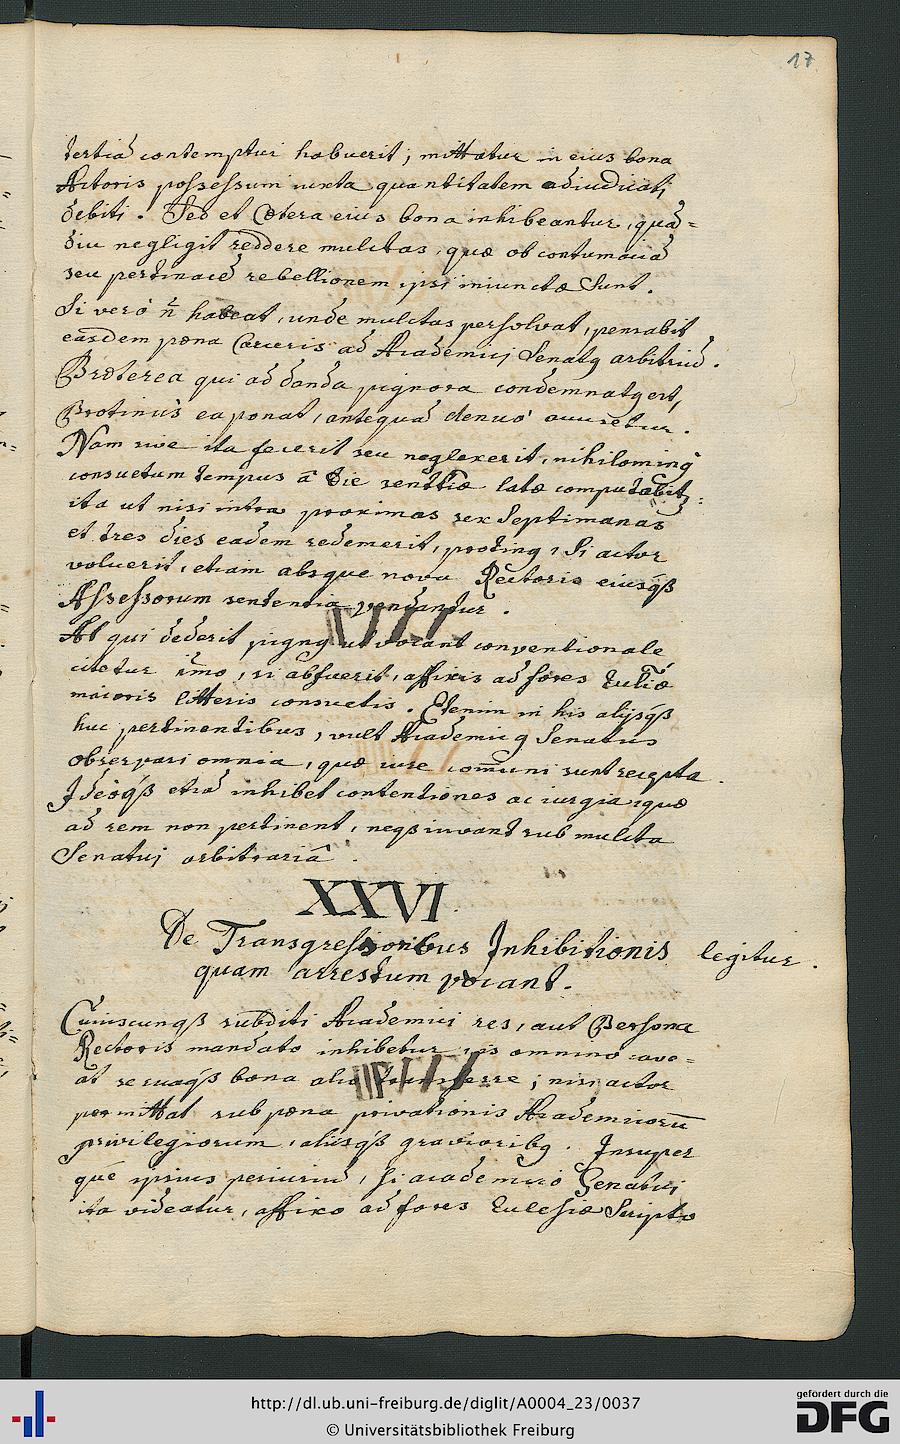 17
tertiã contemptui habuerit; mittatur in eius bona
Actoris possessum iuxta quantitatem adiudicati
debiti. Sed et Cætera eius bona inhibeantur, quã=
diu negligit reddere mulctas, quæ ob contumaciã
seu pertinacẽ rebellionem ipsi iniunctæ sunt.
Si verò ñ habeat, unde mulctas persolvat, pensabit
easdem pœna Carceris ad Academici Senatꝰ arbitriũ.
Præterea qui ad danda pignora condemnatꝰ est,
Protinùs ea ponat, antequã denuò accusetur.
Nam sive ita fecerit seu neglexerit, nihilominꝰ
consuetum tempus â die senttiæ latæ computabitꝛ:
ita ut nisi intra proximas sex Septimanas
et tres dies eadem redemerit, protinꝰ, si actor
voluerit, etiam absque nova Rectoris eiusq̃ß
Assessorum sententia vendantur.
At qui dederit pignꝰ ut vocant conventionale
citetur imo, si abfuerit, affixis ad fores Ecclĩæ
maioris litteris consuetis. Etenim in his alijsq̃ß
huc pertinentibus, vult Academicꝰ Senatus
observari omnia, quæ iure com̄uni sunt recepta.
Ideòq̃ß etiã inhibet contentiones ac iurgia, quæ
ad rem non pertinent, neqß iuvant sub mulcta
Senatuj arbitrariâ.
XXVI.
De Transgressoribus Inhibitionis legitur.
quam arrestum vocant.
Cuiuscunqß subditi Academici res, aut Persona
Rectoris mandato inhibetur, is omnino cave=
at se suaq̃ß bona alio transferre; nisi actor
permittat sub pœna privationis Academicorũ
privilegiorum, aliisq̃ß gravioribꝰ. Insuper
quẽ ipsius periuriũ, si academico Senatui
ita videatur, affixo ad fores Ecclesiæ Scripto
http://dl.ub.uni-freiburg.de/diglit/A0004_23/0037
© Universitätsbibliothek Freiburg
gefördert durch die
DFG